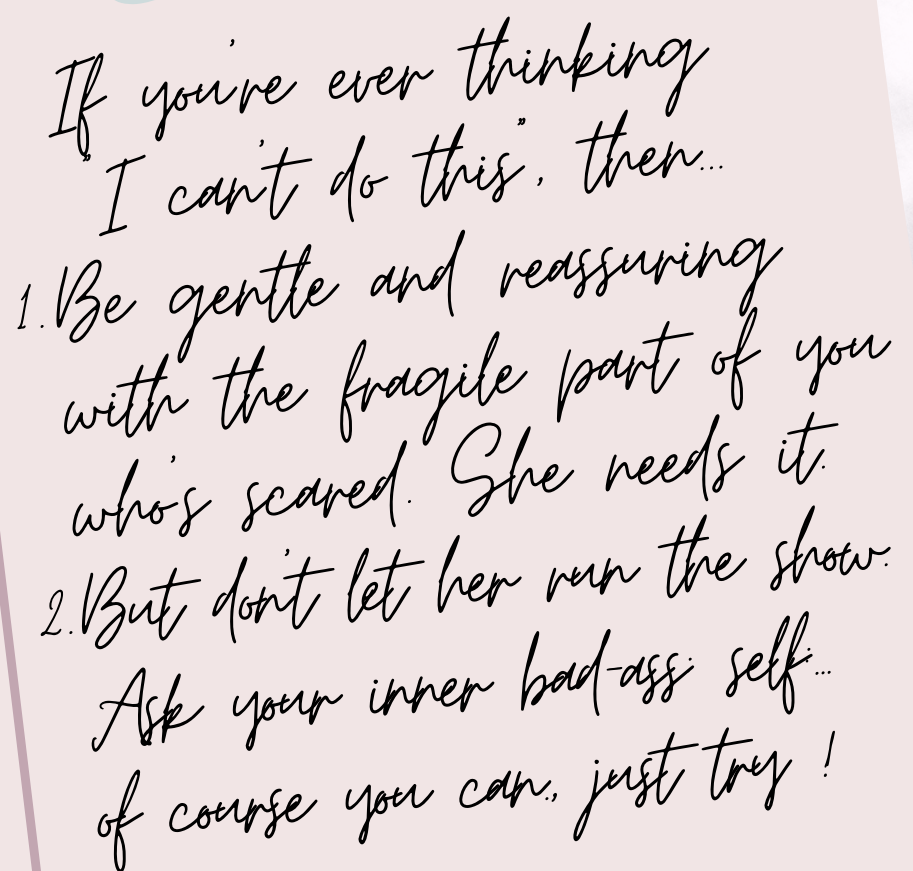 If you're ever thinking
"I can't do this", then...
1. Be gentle and reassuring
with the fragile part of you
who's scared. She needs it.
2. But don't let her run the show.
Ask your inner bad-ass self:...
of course you can., just try !